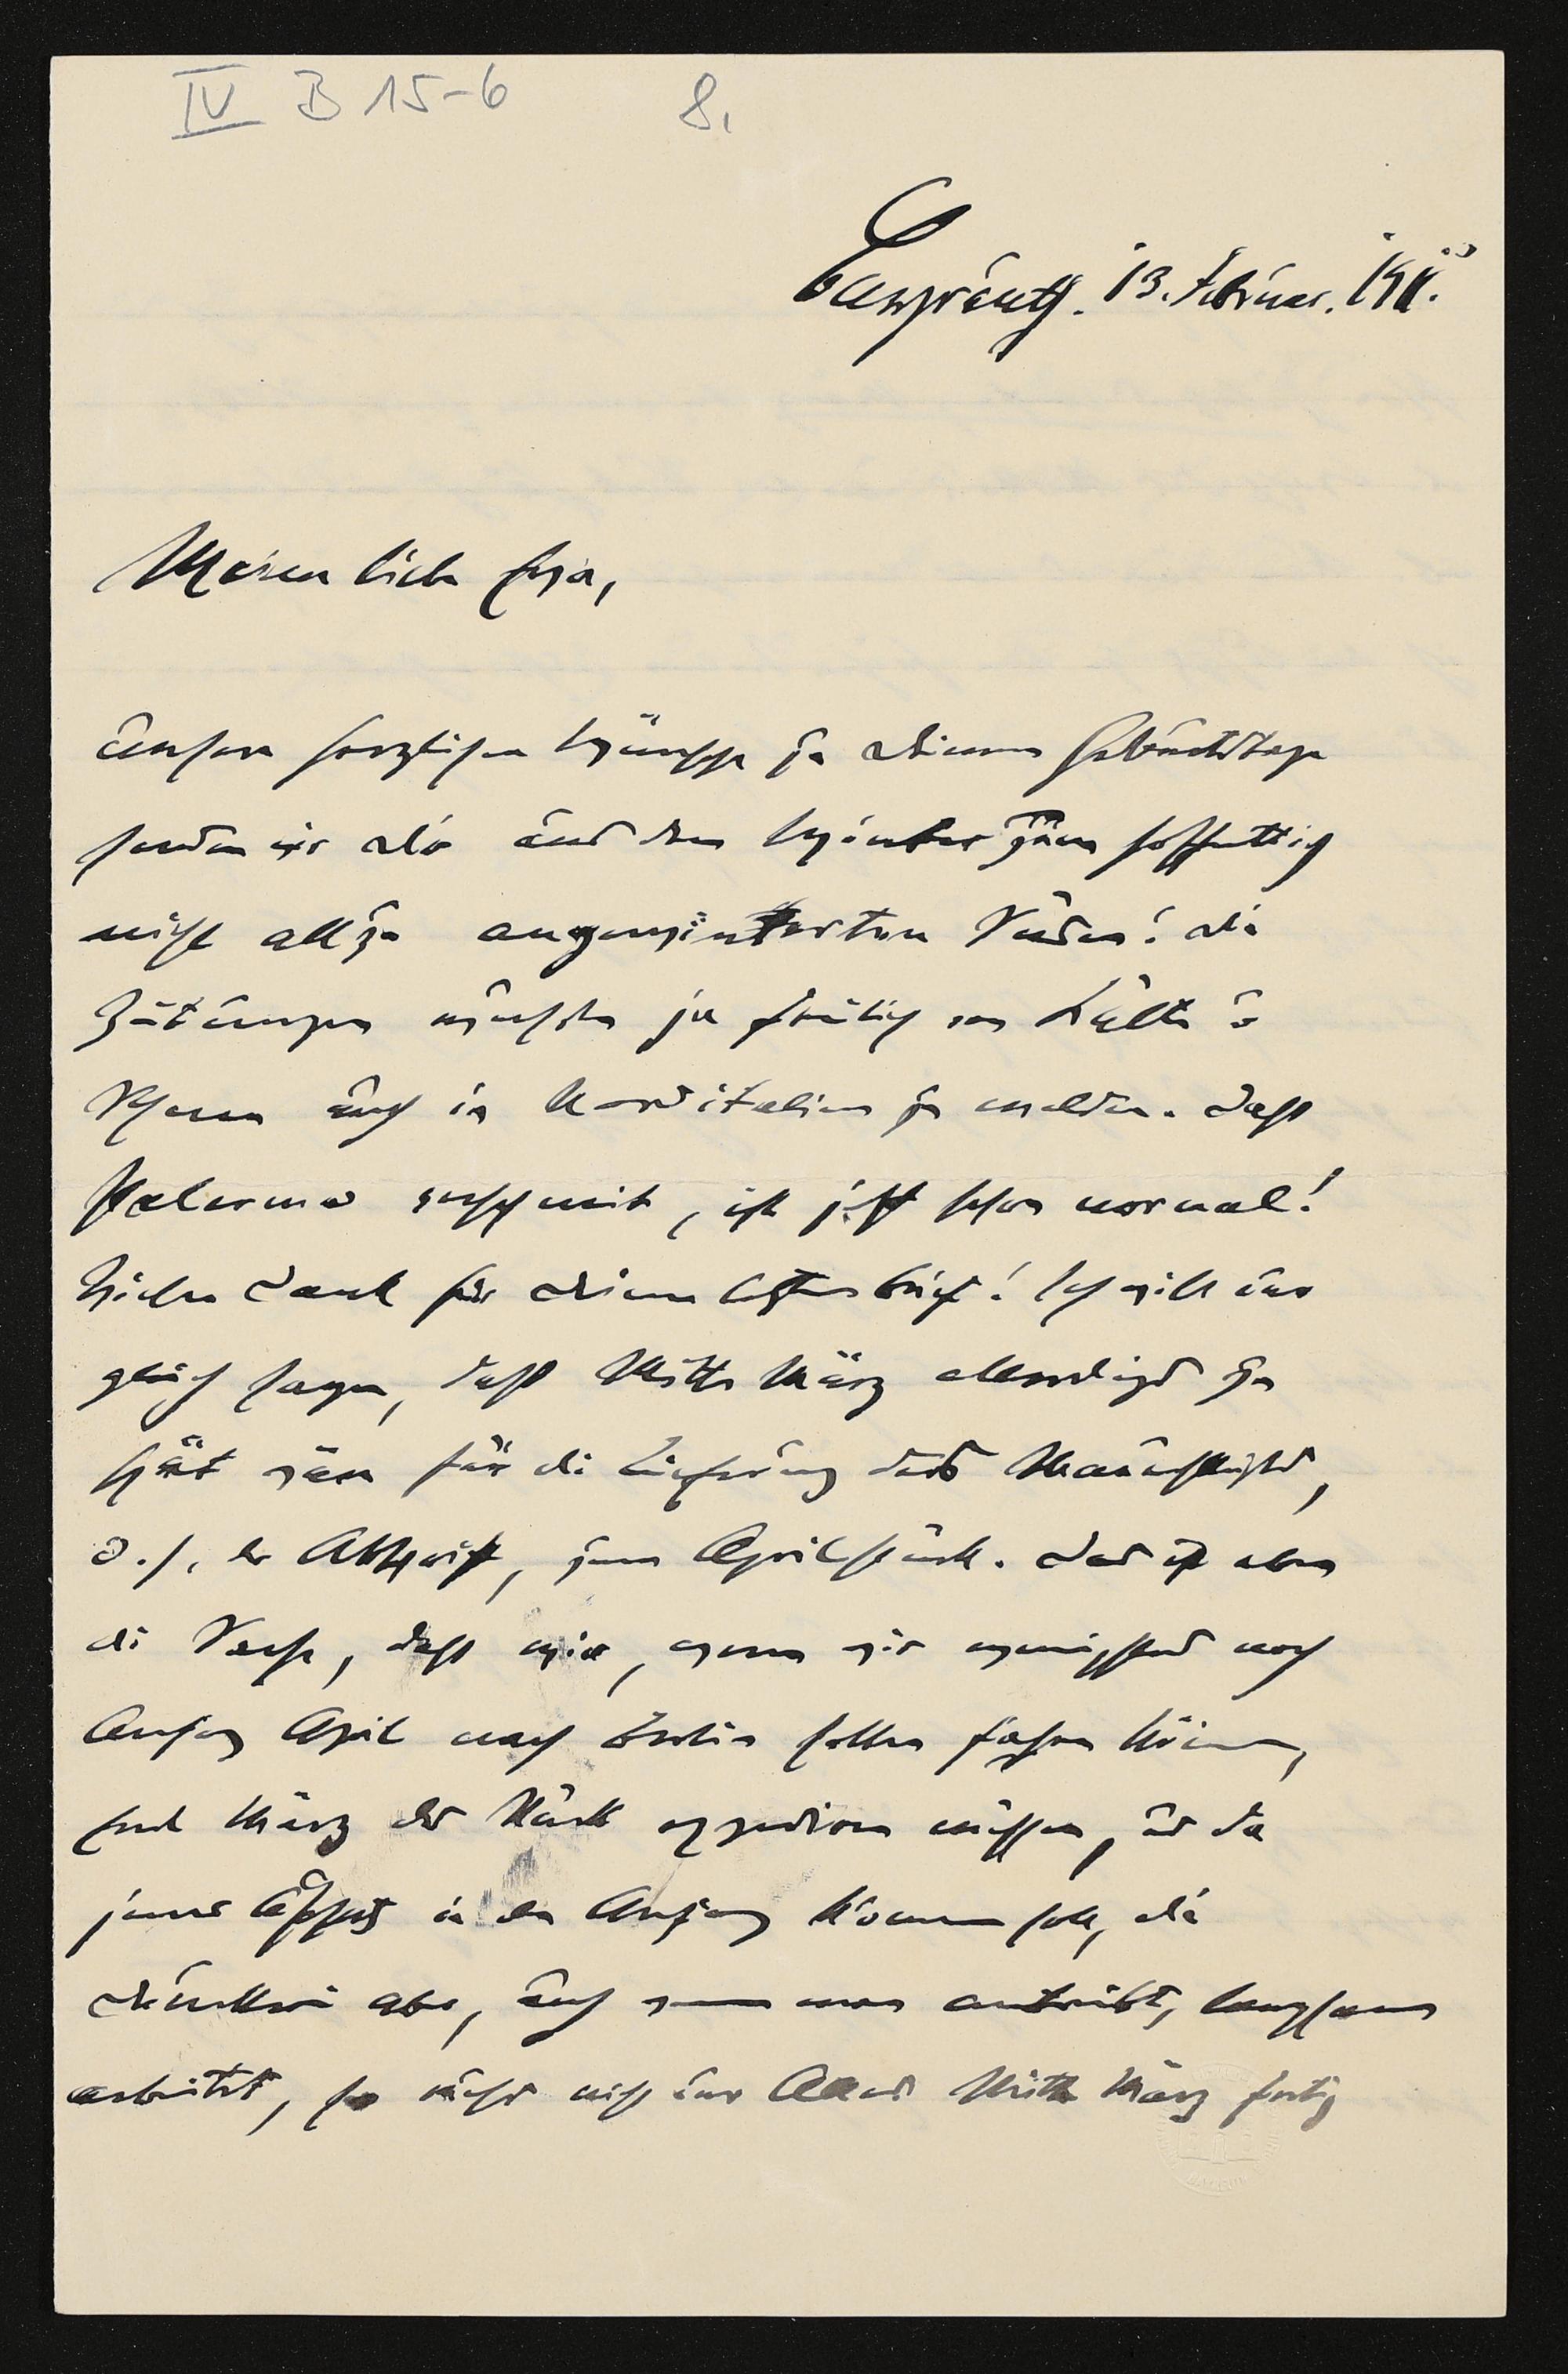 IV B 15-6 8,
Bayreuth. 13. Februar.
Meinen lieben
Unsere herzlichen Wünsche zu Deinem Geburtstage
senden wir Dir aus dem Winter zum hoffentlich
nicht allzu angewinterten Süden! Die
Zeitungen wussten ja freilich von Kälte u
Schnee auch in Norditalien zu melden. Dass
Palermo verschneit, ist jetzt schon normal!
Vielen Dank für Deinen letzten Brief! Ich will nur
gleich sagen, dass Mitte März allerdings zu
spät wäre für die Lieferung des Manuskripts,
d. h. der Abschrift, zum Aprilstück. Das ist eben
die Sache, dass wir, wenn wir wenigstens noch
Anfang April nach Berlin sollen fahren können,
Ende März das Stück expedieren müssen, und da
jener Aufsatz in den Anfang kommen soll, die
Druckerei aber, auch wenn man antreibt, langsam
arbeitet, so nicht nur Alles Mitte März fertig